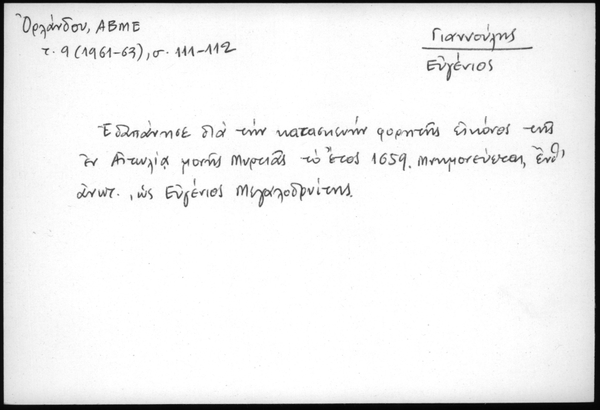 Ὀρλάνδου, ΑΒΜΕ
τ. 9 (1961-63), σ. 111-112
Γιαννούλης
Εὐγένιος
Ἐδαπάνησε διὰ τὴν κατασκευὴν φορητῆς εἰκόνος τῆς
ἐν Αἰτωλίᾳ μονῆς Μυρτιᾶς τὸ ἔτος 1659. Μνημονεύεται, ἔνθ'
ἀνωτ., ὡς Εὐγένιος Μεγαλοδρνίτης.